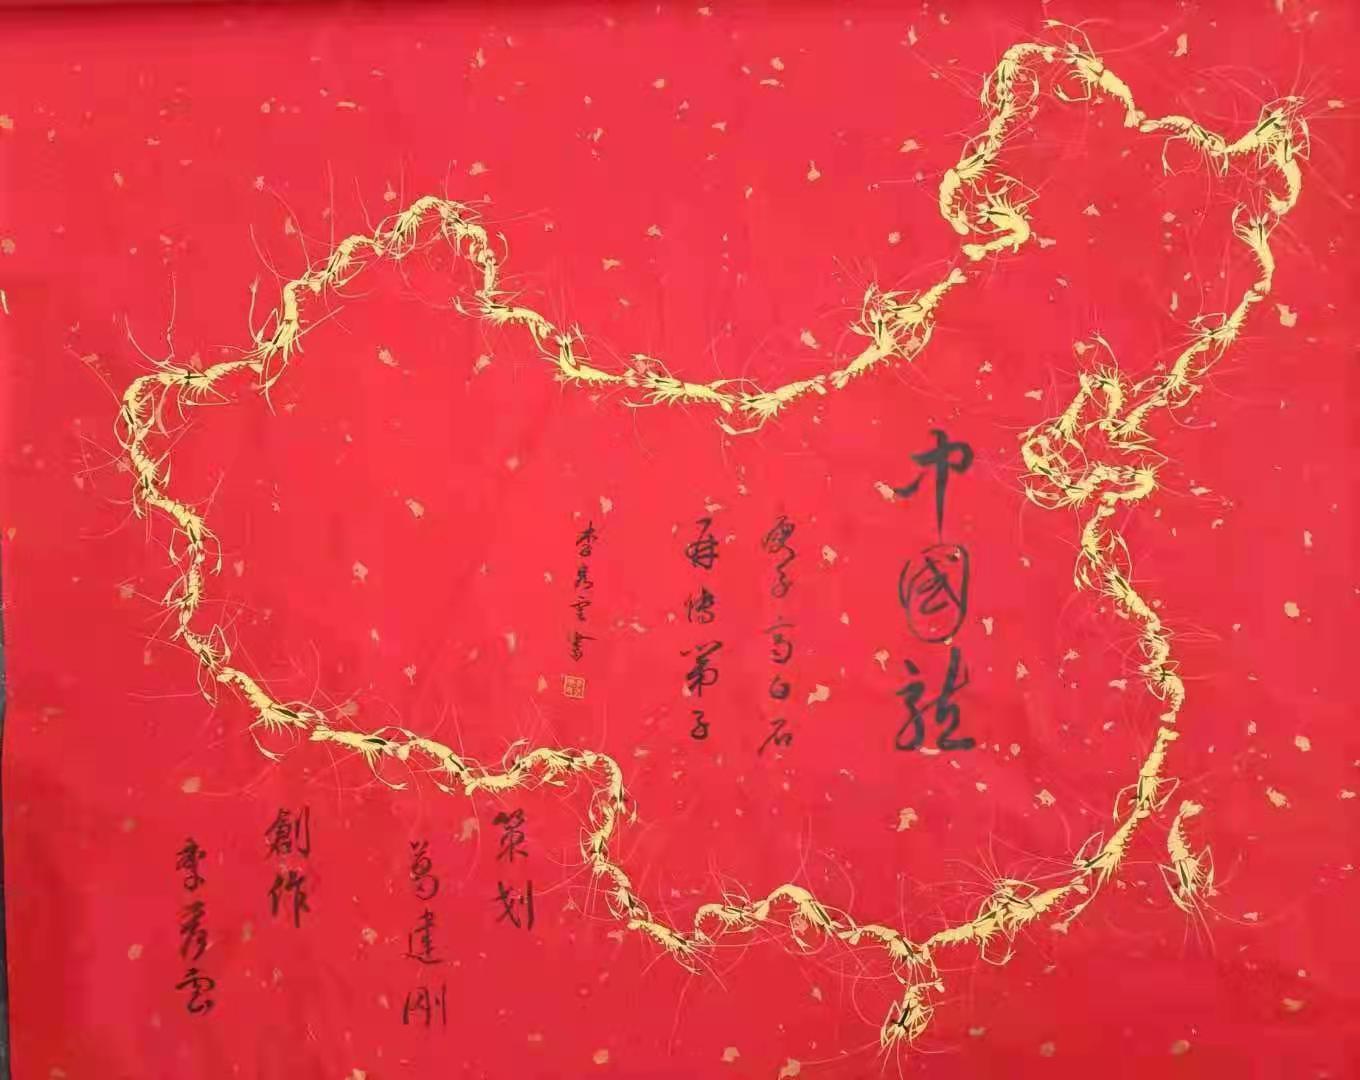 中國龍
庚子高白石
再傳弟子
李彦雲書
策划
葛建刚
創作
李彦雲